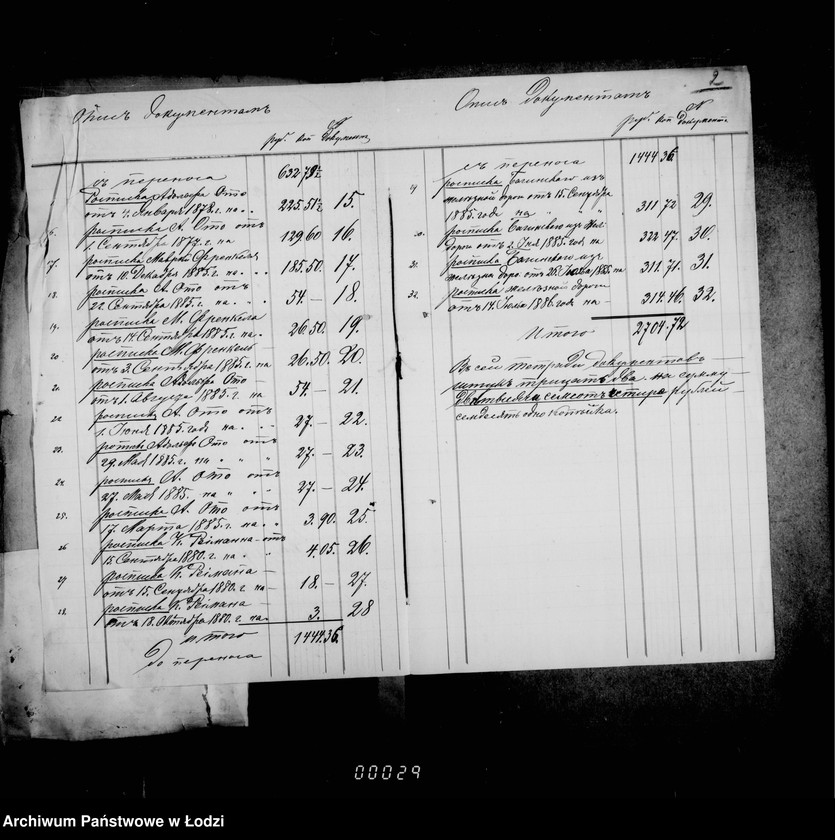 2
Опись Документамъ
руб. коп. № Документа
съ переноса 632 79½
Росписка Адольфа Ото
отъ 1/2 Января 1872 г. на 225.51½ 15.
16. росписка А. Ото отъ
1. Сентября 1872. г. на 129.60 16.
17. росписка Маврикiя Френкеля
отъ 10. Декабря 1885. г. на 185.50. 17.
18. росписка А. Ото отъ
22. Сентября 1885. г. на 54.— 18.
19. росписка М. Френкеля
отъ 14. Сентября 1885. г. на 26.50. 19.
20. росписка М. Френкель
отъ 3. Сентября 1885. г. на 26.50. 20.
21. росписка Адольфа Ото
отъ 1. Августа 1885. г. на 54.— 21.
22. росписка А. Ото отъ
1. Iюня 1885. года на 27.— 22.
23. росписка Адольфа Ото отъ
29. Мая 1885. г. на 27.— 23.
24. росписка А. Ото отъ
27. Мая 1885. на 27.— 24.
25. росписка А. Ото отъ
17. Марта 1885. г. на 3.90. 25.
26. росписка К. Реймана отъ
15. Сентября 1880. г. на 4.05. 26.
27. росписка К. Реймана
отъ 15. Сентября 1880. г. на 18.— 27.
28. росписка К. Реймана
отъ 18. Октября 1880. г. на 3. 28
итого 1444.36.
До переноса
Опись Документамъ
руб. коп. № Документа
съ переноса 1444 36
росписка
желѣзной дороги отъ 15. Сентября
1885. года на 311.72 29.
30. росписка
дороги отъ 2. Iюля 1885. года на 332.47. 30.
31. росписка
отъ 25. 1885. на 311.71. 31.
32. росписка желѣзной дороги
отъ 14. Iюля 1886. года на 314.46. 32.
Итого 2704.72
Въ сей тетради документовъ
штукъ тридцать два на сумму
Двѣ тысячи семсотъ четыре рублей
семдесятъ одно копѣйка.
00029
Archiwum Państwowe w Łodzi